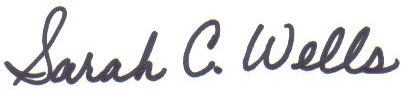 Sarah C. Wells